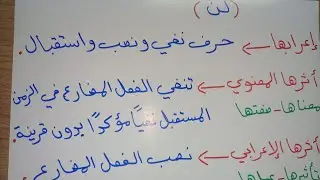 (لن)
إعرابها ← حرف نفي ونصب واستقبال.
أثرها المعنوي ← تنفي الفعل المضارع في الزمن
معناها - صفتها المستقبل نفياً مؤكداً بدون قرينة.
أثرها الإعرابي ← نصب الفعل المضارع.
تأثيرها - عملها